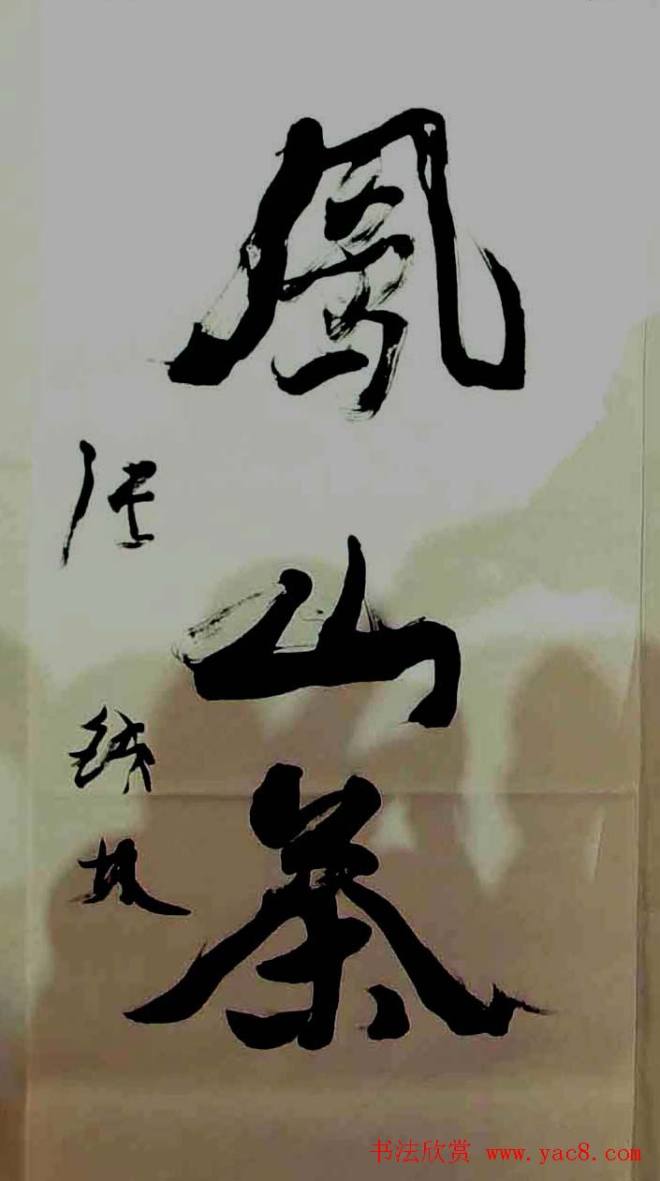 鳳山茶
张铁林
书法欣赏 www.yac8.com